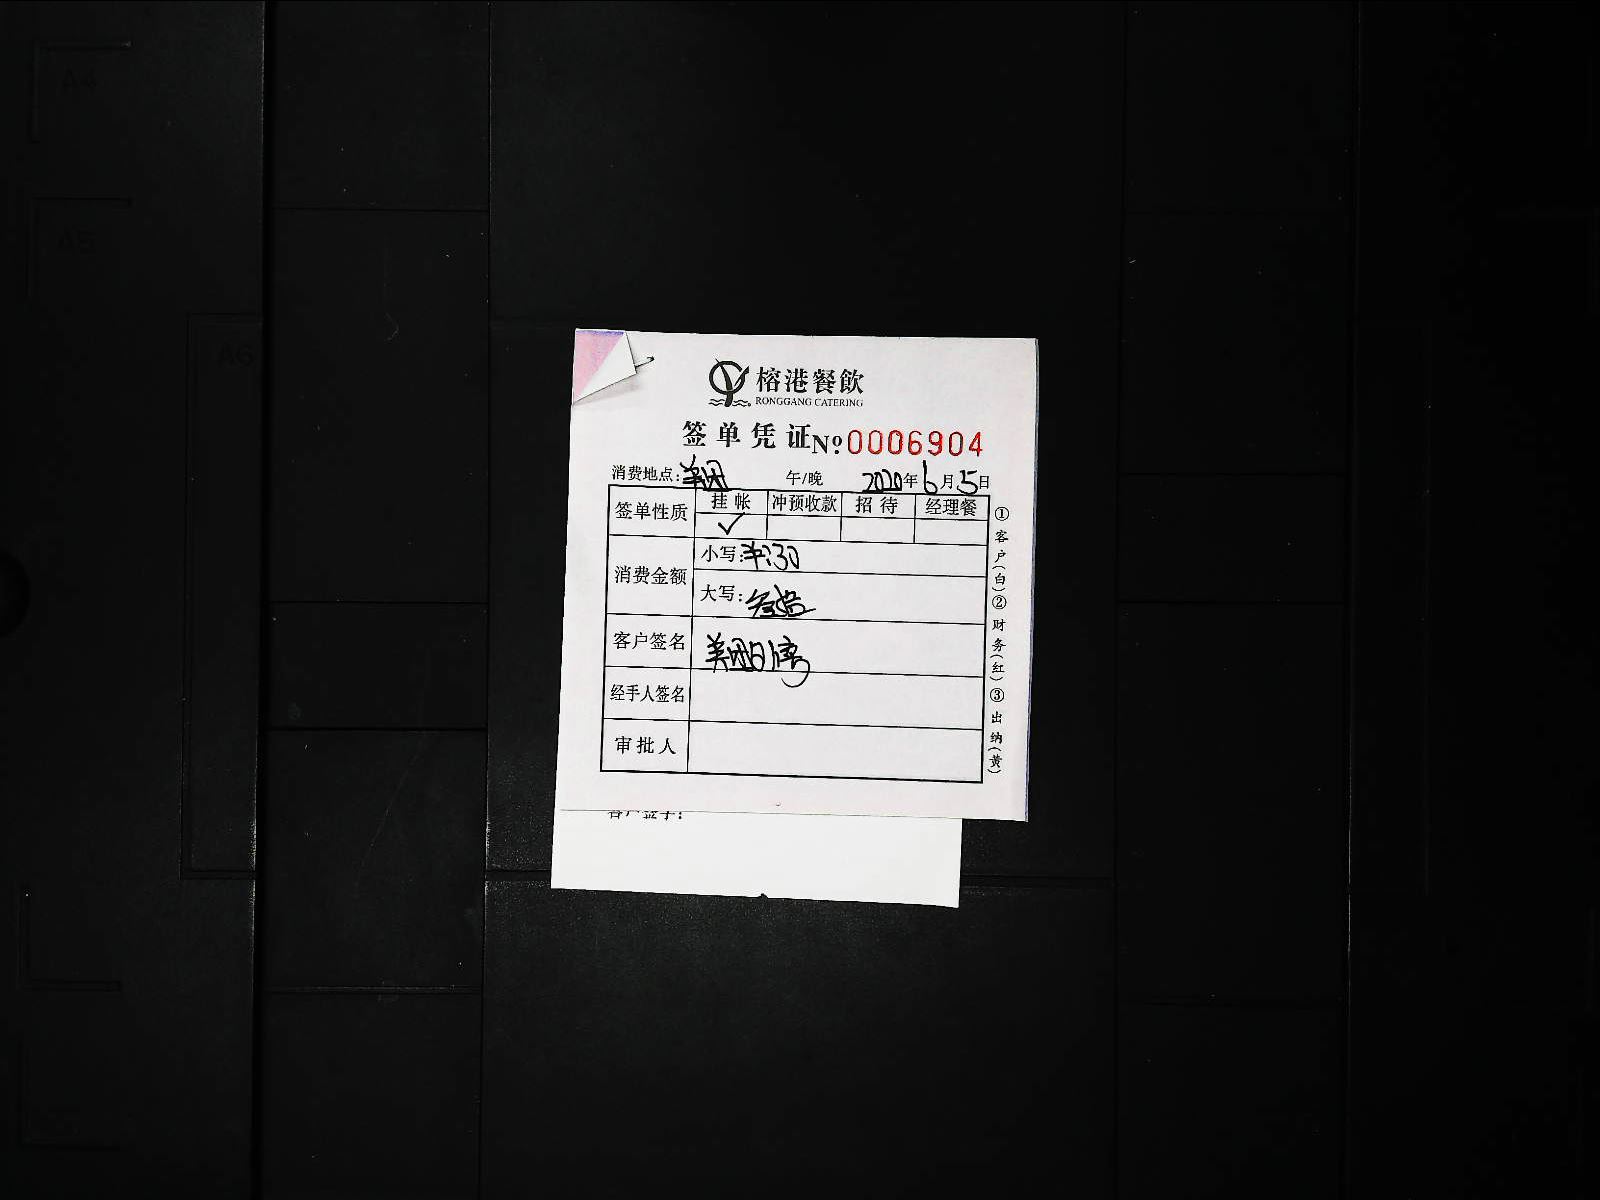 A4
A5
A6
榕港餐飲
RONGGANG CATERING
签单凭证 №:0006904
消费地点:美团 午/晚 2020年6月5日
签单性质 挂帐 冲预收款 招待 经理餐
✓
消费金额 小写:30
大写:叁拾
客户签名 美团
经手人签名
审批人
①客户(白)②财务(红)③出纳(黄)
客户签字: